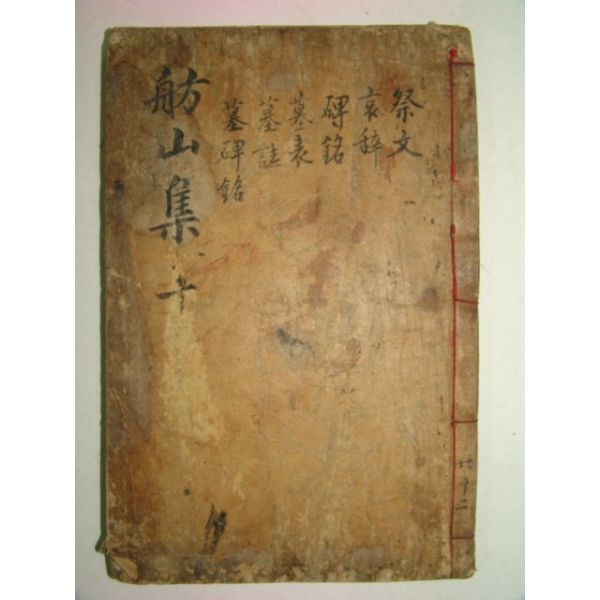 舫山集 十
祭文
哀辭
碑銘
墓表
墓誌
墓碑銘
共十二